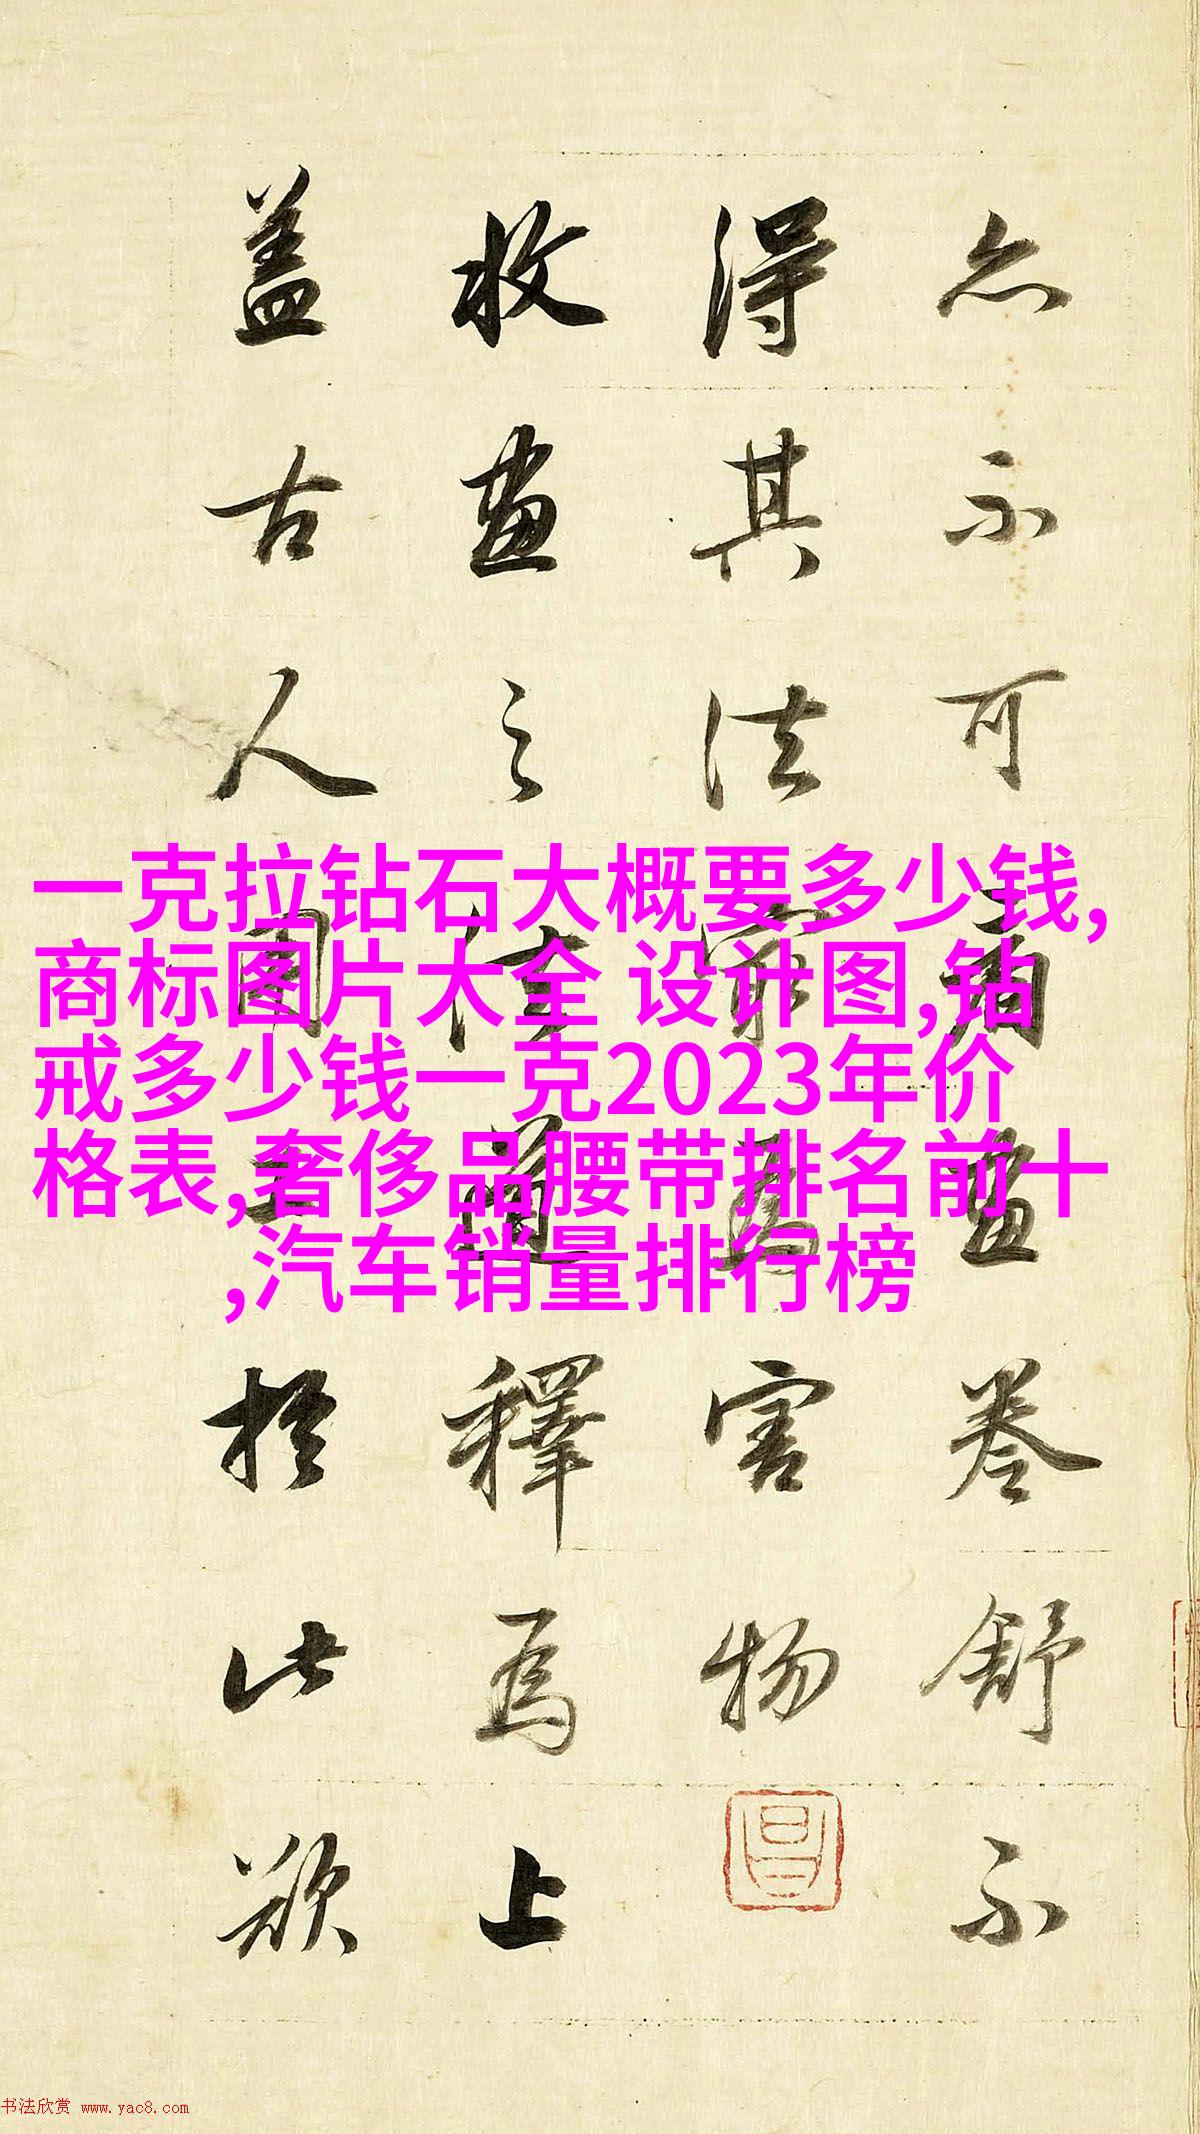 亦不可
卷舒不
得其法
害物
收畫之
道釋為上
盖古人
於此欲
一克拉钻石大概要多少钱,
商标图片大全 设计图,钻
戒多少钱一克2023年价
格表,奢侈品腰带排名前十
,汽车销量排行榜
书法欣赏 www.yac8.com